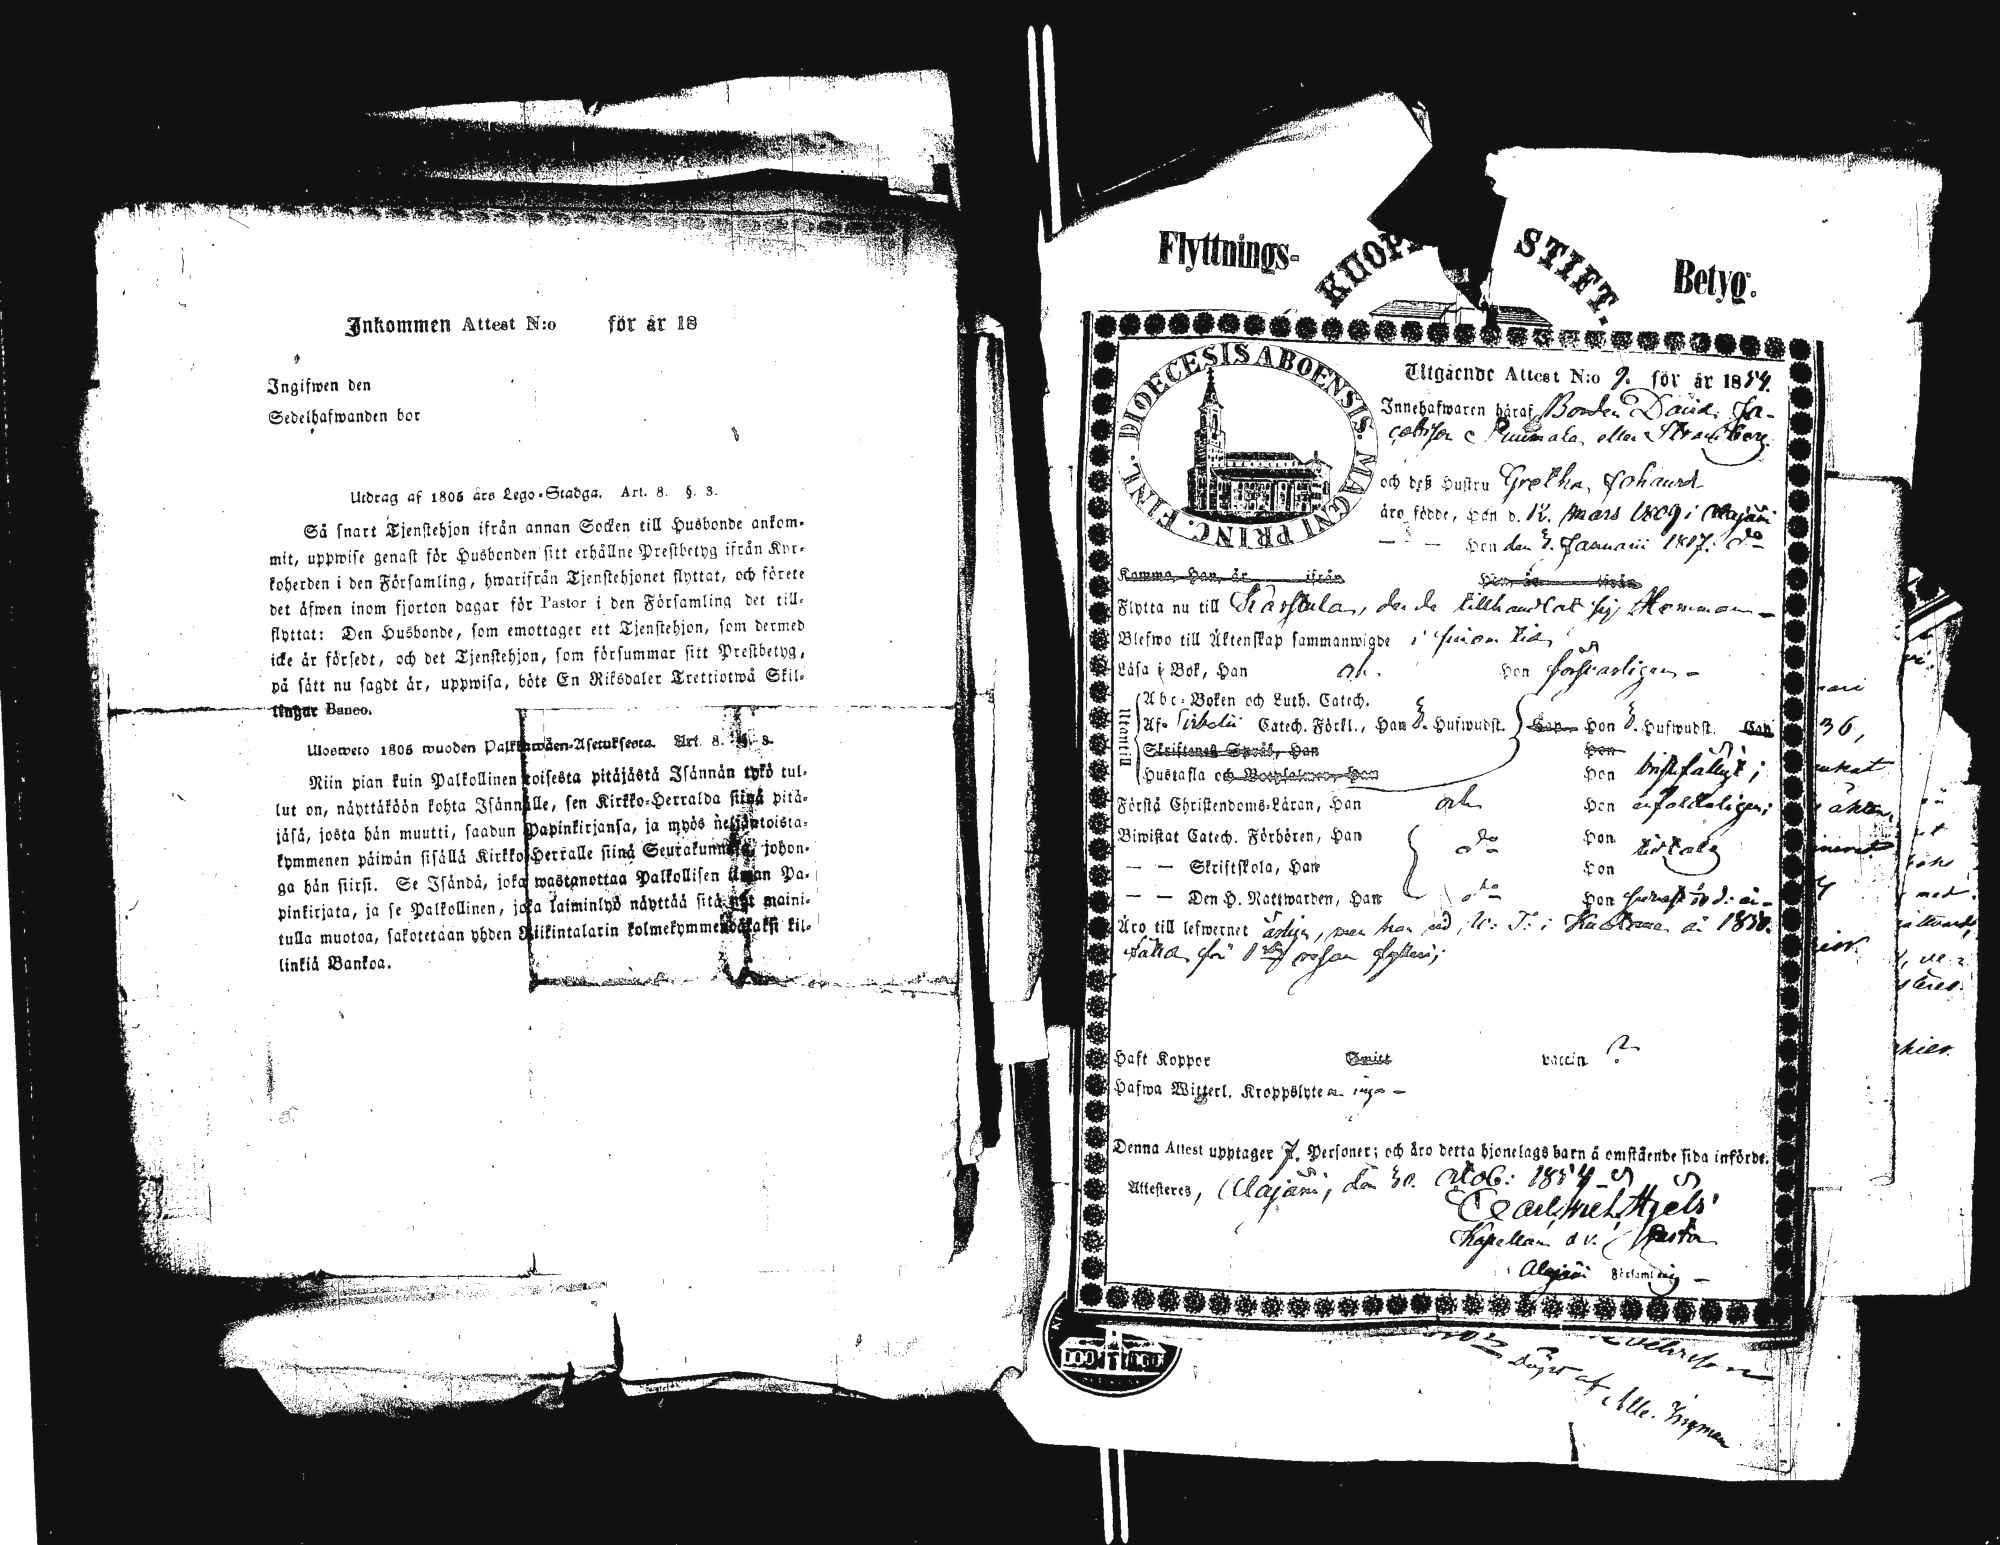 Inkommen Attest N:o för år 18
Ingifwen den
Sedelhafwanden bor
Utdrag af 1805 års Lego-Stadga. Art. 8. §. 3.
Så snart Tjenstehjon ifrån annan Socken till Husbonde ankom-
mit, uppwise genast för Husbonden sitt erhållne Prestbetyg ifrån Kyr-
koherden i den Församling, hwarifrån Tjenstehjonet flyttat, och förete
det äfwen inom fjorton dagar för Pastor i den Församling det till-
flyttat: Den Husbonde, som emottager ett Tjenstehjon, som dermed
icke är försedt, och det Tjenstehjon, som försummar sitt Prestbetyg,
på sätt nu sagdt är, uppwisa, böte En Riksdaler Trettiotwå Skil-
lingar Banco.
Ulosweto 1805 wuoden Palkkawäen-Asetuksesta. Art. 8. §. 3.
Niin pian kuin Palkollinen toisesta pitäjästä Isännän tykö tul-
lut on, näyttäköön kohta Isännälle, sen Kirkko-Herralda siinä pitä-
jäsä, josta hän muutti, saadun Papinkirjansa, ja myös neljäntoista-
kymmenen päiwän sisällä Kirkko-Herralle siinä Seurakunnasa, johon-
ga hän siirsi. Se Isändä, joka wastanottaa Palkollisen ilman Pa-
pinkirjata, ja se Palkollinen, joka laiminlyö näyttää sitä nyt maini-
tulla muotoa, sakotetaan yhden Riikintalarin kolmekymmendäkaksi kil-
linkiä Bankoa.
Flyttnings- KUOP STIFT. Betyg.
DIOECESIS ABOENSIS. MAGNI PRINC. FINL.
Utgående Attest N:o 9. för år 1854.
Innehafwaren häraf Bonden David Ja-
cobsson Puumala eller Strandberg
och deß Hustru Gretha Johansd
äro födde, Han d. 12. Mars 1809 i Alajärvi
— — Hon den 3. Januarii 1817. do
Komma, Han, år ifrån Hon, år ifrån
Flytta nu till Karstula, der de tillhandlat sig Hemman —
Blefwo till Äktenskap sammanwigde i sinom tid
Läsa i Bok, Han och Hon försvarligen —
Utantill
Abc-Boken och Luth. Catech.
Af Catech. Förkl., Han 3. Hufwudst. Cap. Hon 3. Hufwudst. Cap
Skriftenes Språk, Han Hon
Hustafla och Botpsalmer, Han Hon bristfälligt;
Förstå Christendoms-Läran, Han och Hon enfaldeligen;
Biwistat Catech. Förhören, Han do Hon
— — Skriftskola, Han Hon
— — Den H. Nattwarden, Han do Hon senast d:
Äro till lefwernet ärlige, men han vid W. T. i år 1838.
fälld för 1sta resan fylleri;
Haft Koppor Smitt vaccin ?
Hafwa Witterl. Kroppslyten inga —
Denna Attest upptager 7. Personer; och äro detta hjonelags barn å omstående sida införde.
Attesteres, Alajärvi, den 30. Octob: 1854.
Kapellan d v. Pastor
i Alajärvi Församling —
af Alle. Ingman